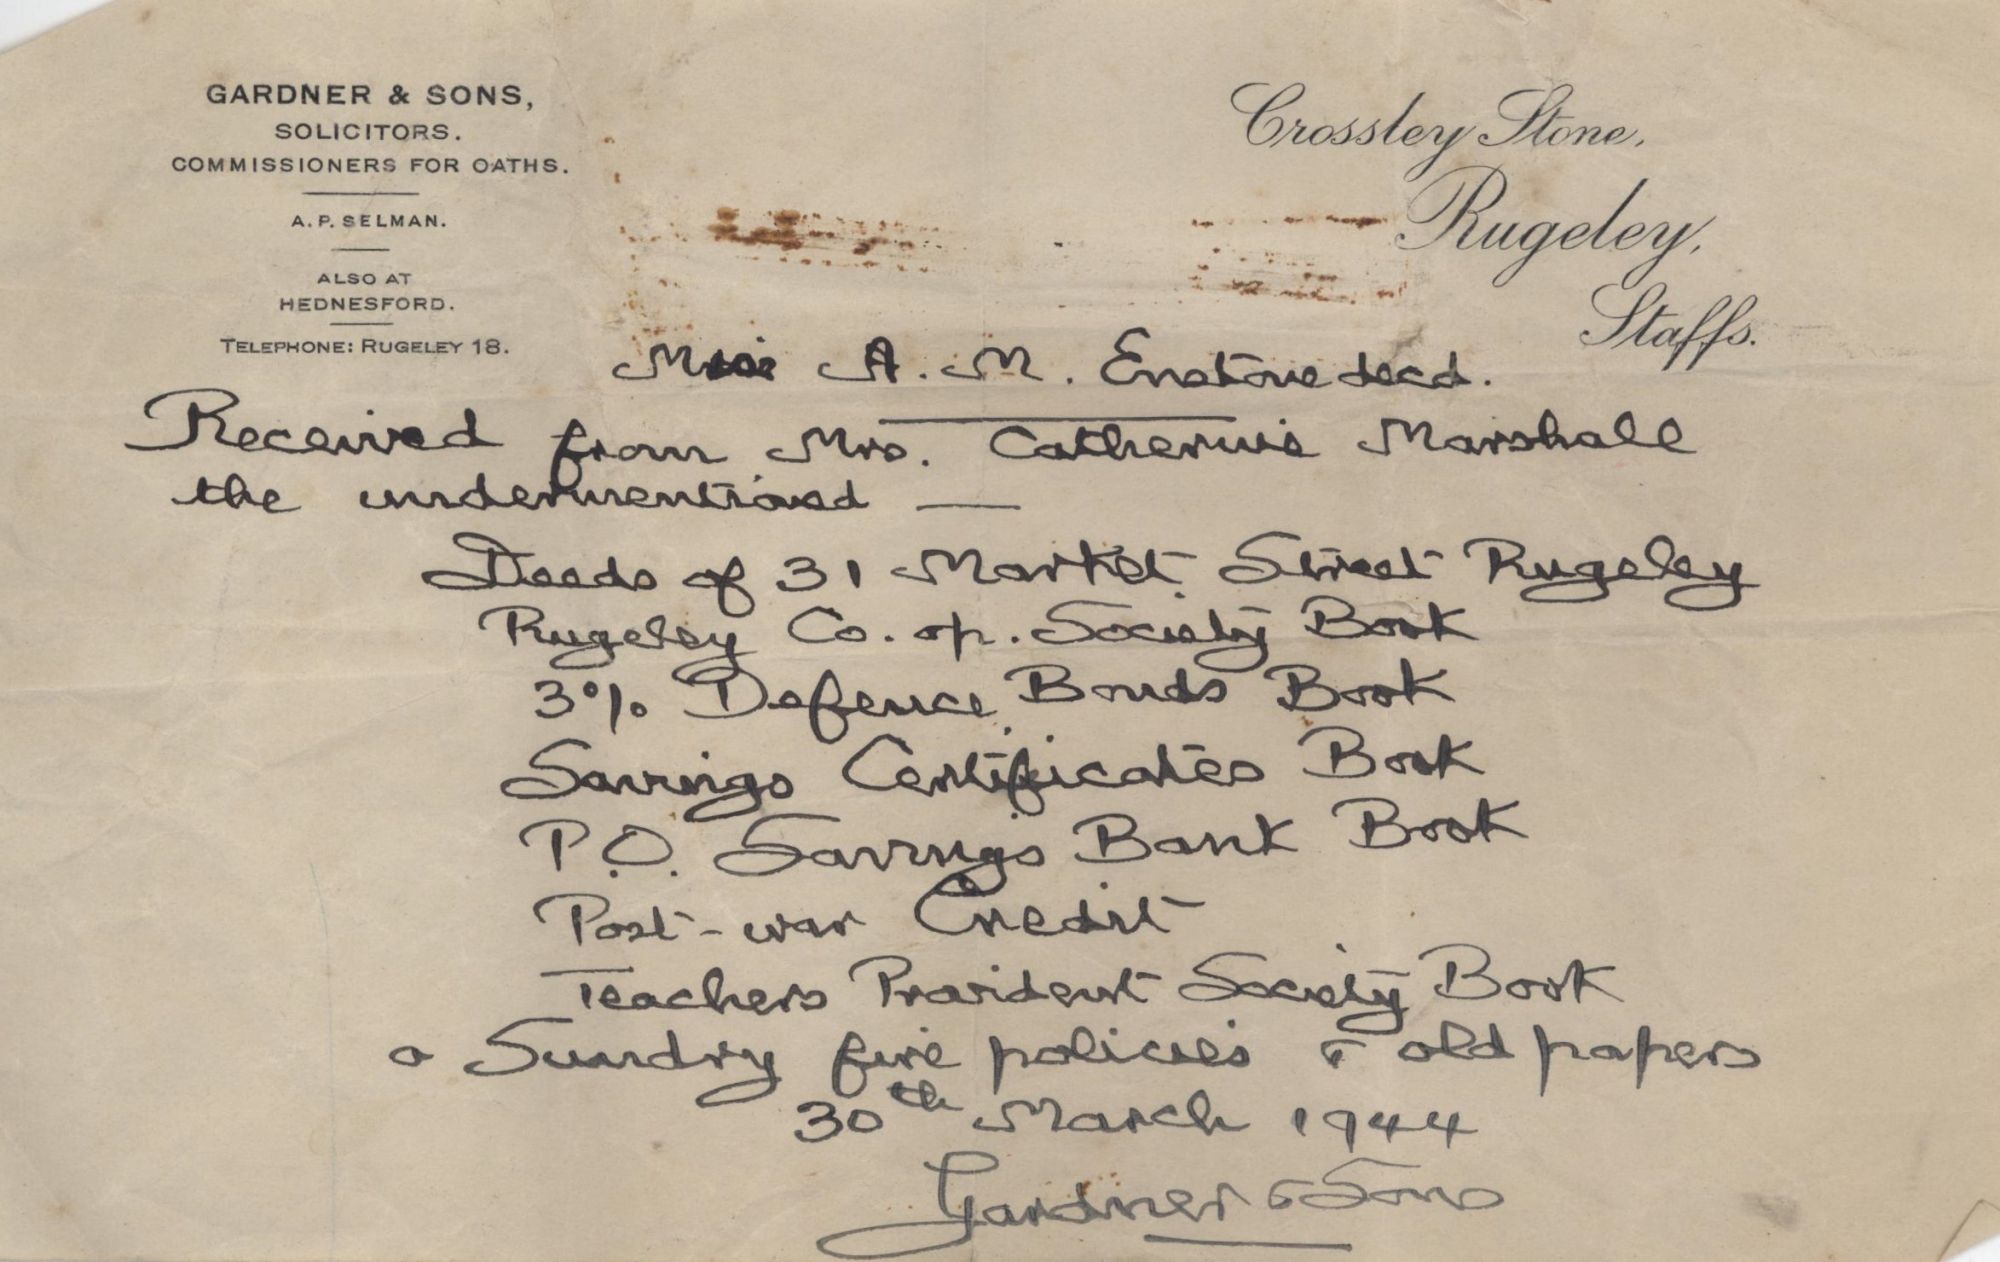 GARDNER & SONS,
SOLICITORS.
COMMISSIONERS FOR OATHS.
A. P. SELMAN.
ALSO AT
HEDNESFORD.
TELEPHONE: RUGELEY 18.
Crossley Stone,
Rugeley,
Staffs.
Miss A. M. Enstone decd.
Received from Mrs. Catherine Marshall
the undermentioned —
Deeds of 31 Market Street Rugeley
Rugeley Co. op. Society Book
3% Defence Bonds Book
Savings Certificates Book
P.O. Savings Bank Book
Post-war Credit
Teachers Provident Society Book
Sundry fire policies & old papers
30th March 1944
Gardner & Sons